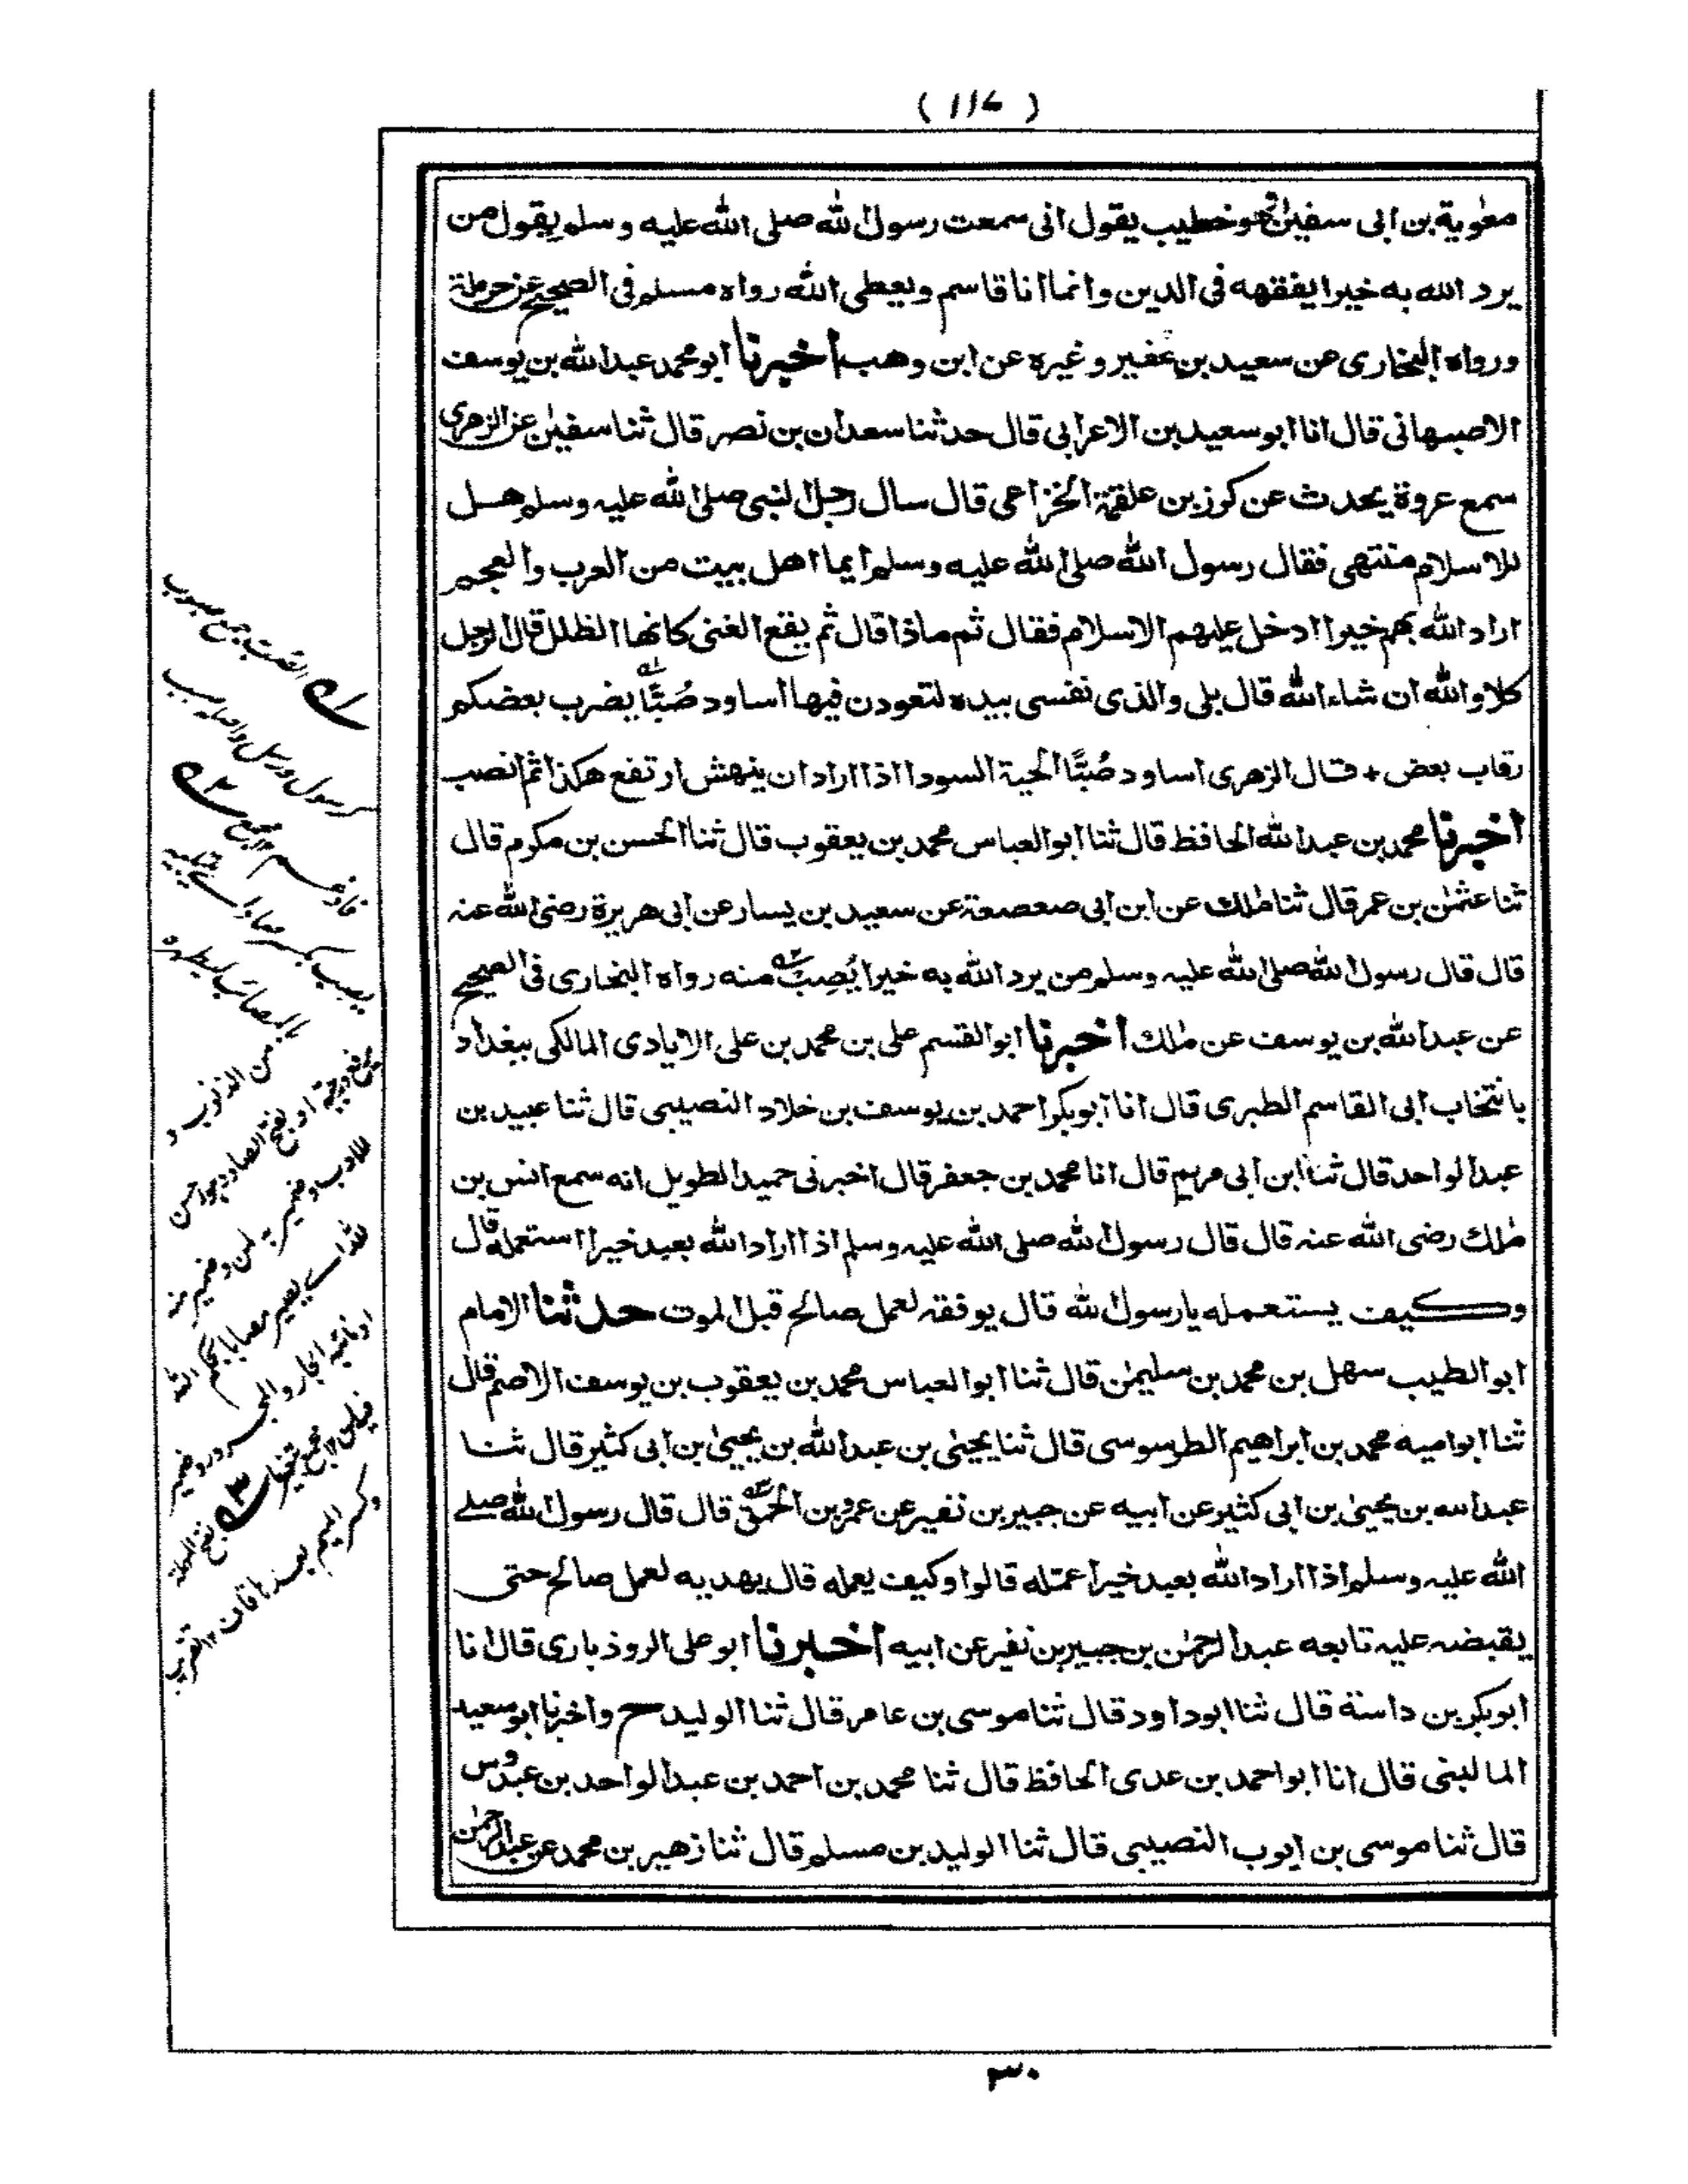 ( ۱۱۷ )
معٰوية بن ابى سفيٰن وهو خطيب يقول انى سمعت رسول الله صلى الله عليه وسلم يقول من
يرد الله به خيرا يفقهه فى الدين وانما انا قاسم ويعطى الله رواه مسلم فى الصحيح عن حرملة
ورواه البخارى عن سعيد بن عفير وغيره عن ابن وهب اخبرنا ابو محمد عبد الله بن يوسف
الاصبهانى قال انا ابو سعيد بن الاعرابى قال حدثنا سعدان بن نصر قال ثنا سفيٰن عن الزهرى
سمع عروة يحدث عن كوز بن علقمة الخزاعى قال سال رجل النبى صلى الله عليه وسلم هسل
للاسلام منتهى فقال رسول الله صلى الله عليه وسلم ايما اهل بيت من العرب والعجم
اراد الله بهم خيرا ادخل عليهم الاسلام فقال ثم ماذا قال ثم يقع الغنى كانها الظلل قال الرجل
كلا والله ان شاء الله قال بلى والذى نفسى بيده لتعودن فيها اساود صُبًّا يضرب بعضكم
رقاب بعض + قال الزهرى اساود صُبًّا الحية السودا اذا اراد ان ينهش ارتفع هكذا ثم انصب
اخبرنا محمد بن عبد الله الحافظ قال ثنا ابو العباس محمد بن يعقوب قال ثنا الحسن بن مكرم قال
ثنا عثمٰن بن عمر قال ثنا مٰلك عن ابن ابى صعصعة عن سعيد بن يسار عن ابى هريرة رضى الله عنه
قال قال رسول الله صلى الله عليه وسلم من يرد الله به خيرا يُصِبْ منه رواه البخارى فى الصحيح
عن عبد الله بن يوسف عن مٰلك اخبرنا ابو القسم على بن محمد بن على الايادى المالكى ببغداد
بانتخاب ابى القاسم الطبرى قال انا ابو بكر احمد بن يوسف بن خلاد النصيبى قال ثنا عبيد بن
عبد الواحد قال ثنا ابن ابى مريم قال انا محمد بن جعفر قال اخبرنى حميد الطويل انه سمع انس بن
مٰلك رضى الله عنه قال قال رسول الله صلى الله عليه وسلم اذا اراد الله بعبد خيرا استعمله قال
وكيف يستعمله يا رسول الله قال يوفقه لعمل صالح قبل الموت حدثنا الامام
ابو الطيب سهل بن محمد بن سليمٰن قال ثنا ابو العباس محمد بن يعقوب بن يوسف الاصم قال
ثنا ابو اميه محمد بن ابراهيم الطرسوسى قال ثنا يحيىٰ بن عبد الله بن يحيىٰ بن ابى كثير قال ثنا
عبد الله بن يحيىٰ بن ابى كثير عن ابيه عن جبير بن نفير عن عمرو بن الحمق قال قال رسول الله صلے
الله عليه وسلم اذا اراد الله بعبد خيرا عمّله قالوا وكيف يعمله قال يهديه لعمل صالح حتى
يقبضه عليه تابعه عبد الرحمٰن بن جبير بن نفير عن ابيه اخبرنا ابو على الروذبارى قال انا
ابو بكر بن داسة قال ثنا ابو داود قال ثنا موسى بن عامر قال ثنا الوليد ح واخبرنا ابو سعيد
المالينى قال انا ابو احمد بن عدى الحافظ قال ثنا محمد بن احمد بن عبد الواحد بن عبدوس
قال ثنا موسى بن ايوب النصيبى قال ثنا الوليد بن مسلم قال ثنا زهير بن محمد عن عبد الرحمٰن
۳۰